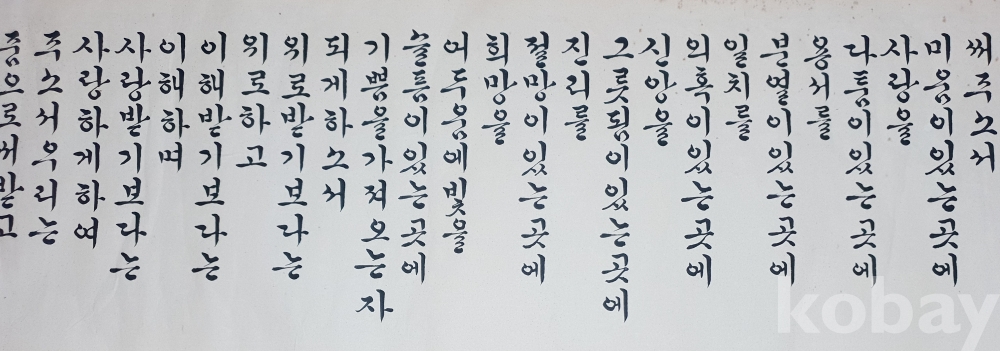 써주소서
미움이있는곳에
사랑을
다툼이있는곳에
용서를
분열이있는곳에
일치를
의혹이있는곳에
신앙을
그릇됨이있는곳에
진리를
절망이있는곳에
희망을
어두움에빛을
슬픔이있는곳에
기쁨을가져오는자
되게하소서
위로받기보다는
위로하고
이해받기보다는
이해하며
사랑받기보다는
사랑하게하여
주소서우리는
줌으로써받고
kobay